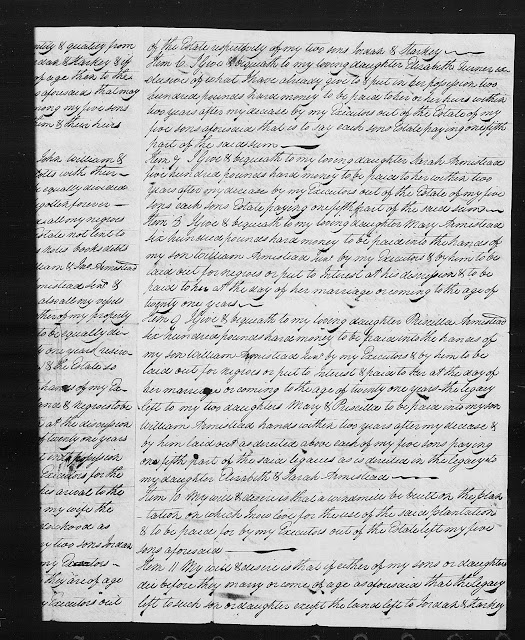 ently & quality from
Jordan & Starkey & if
of age then to the
s aforesaid that may
mong my five sons
them & their heirs
John William &
Tolls with their
be equally divided
gotten forever
nd all my negroes
Estate not lent to
notes books debts
William & Jno Armistead
Armistead Senr &
also all my cyder
other of my property
to be equally di-
ty one years reserv-
s & the Estate so
hands of my Ex-
ands & negroes to be
n at the discretion
of twenty one years
possession
Executors for the
his arrival to the
my wife the
widowhood as
my two sons Jordan
my Executors
they are of age
y Executors out
of the Estate respectively of my two sons Jordan & Starkey
Item 6 I give & bequeath to my loving daughter Elizabeth Turner ex-
clusive of what I have already give to & put in her possession two
hundred pounds hard money to be paid to her or her heirs within
two years after my decease by my Executors out of the Estate of my
five sons aforesaid that is to say each sons Estate paying one fifth
part of the said sum
Item 7 I give & bequeath to my loving daughter Sarah Armistead
five hundred pounds hard money to be paid to her within two
years after my decease by my Executors out of the Estate of my five
sons each sons Estate paying one fifth part of the said sum
Item 8 I give & bequeath to my loving daughter Mary Armistead
six hundred pounds hard money to be paid into the hands of
my son William Armistead Senr by my Executors & by him to be
laid out for negroes or put to Interest at his discretion & to be
paid to her at the day of her marriage or coming to the age of
twenty one years
Item 9 I give & bequeath to my loving daughter Priscilla Armistead
six hundred pounds hard money to be paid into the hands of
my son William Armistead Senr by my Executors & by him to be
laid out for negroes or put to Interest & paid to her at the day of
her marriage or coming to the age of twenty one years the legacy
left to my two daughters Mary & Priscilla to be paid into my son
William Armistead hands within two years after my decease &
by him laid out as directed above each of my five sons paying
one fifth part of the said legacies as is directed in the legacy to
my daughter Elizabeth & Sarah Armistead
Item 10 My will & desire is that a windmill be built on the plan-
tation on which I now live for the use of the said plantation
& to be paid for by my Executors out of the Estate left my five
sons aforesaid
Item 11 My will & desire is that if either of my sons or daughters
die before they marry or come of age as aforesaid that the legacy
left to such son or daughter except the land left to Jordan & Starkey